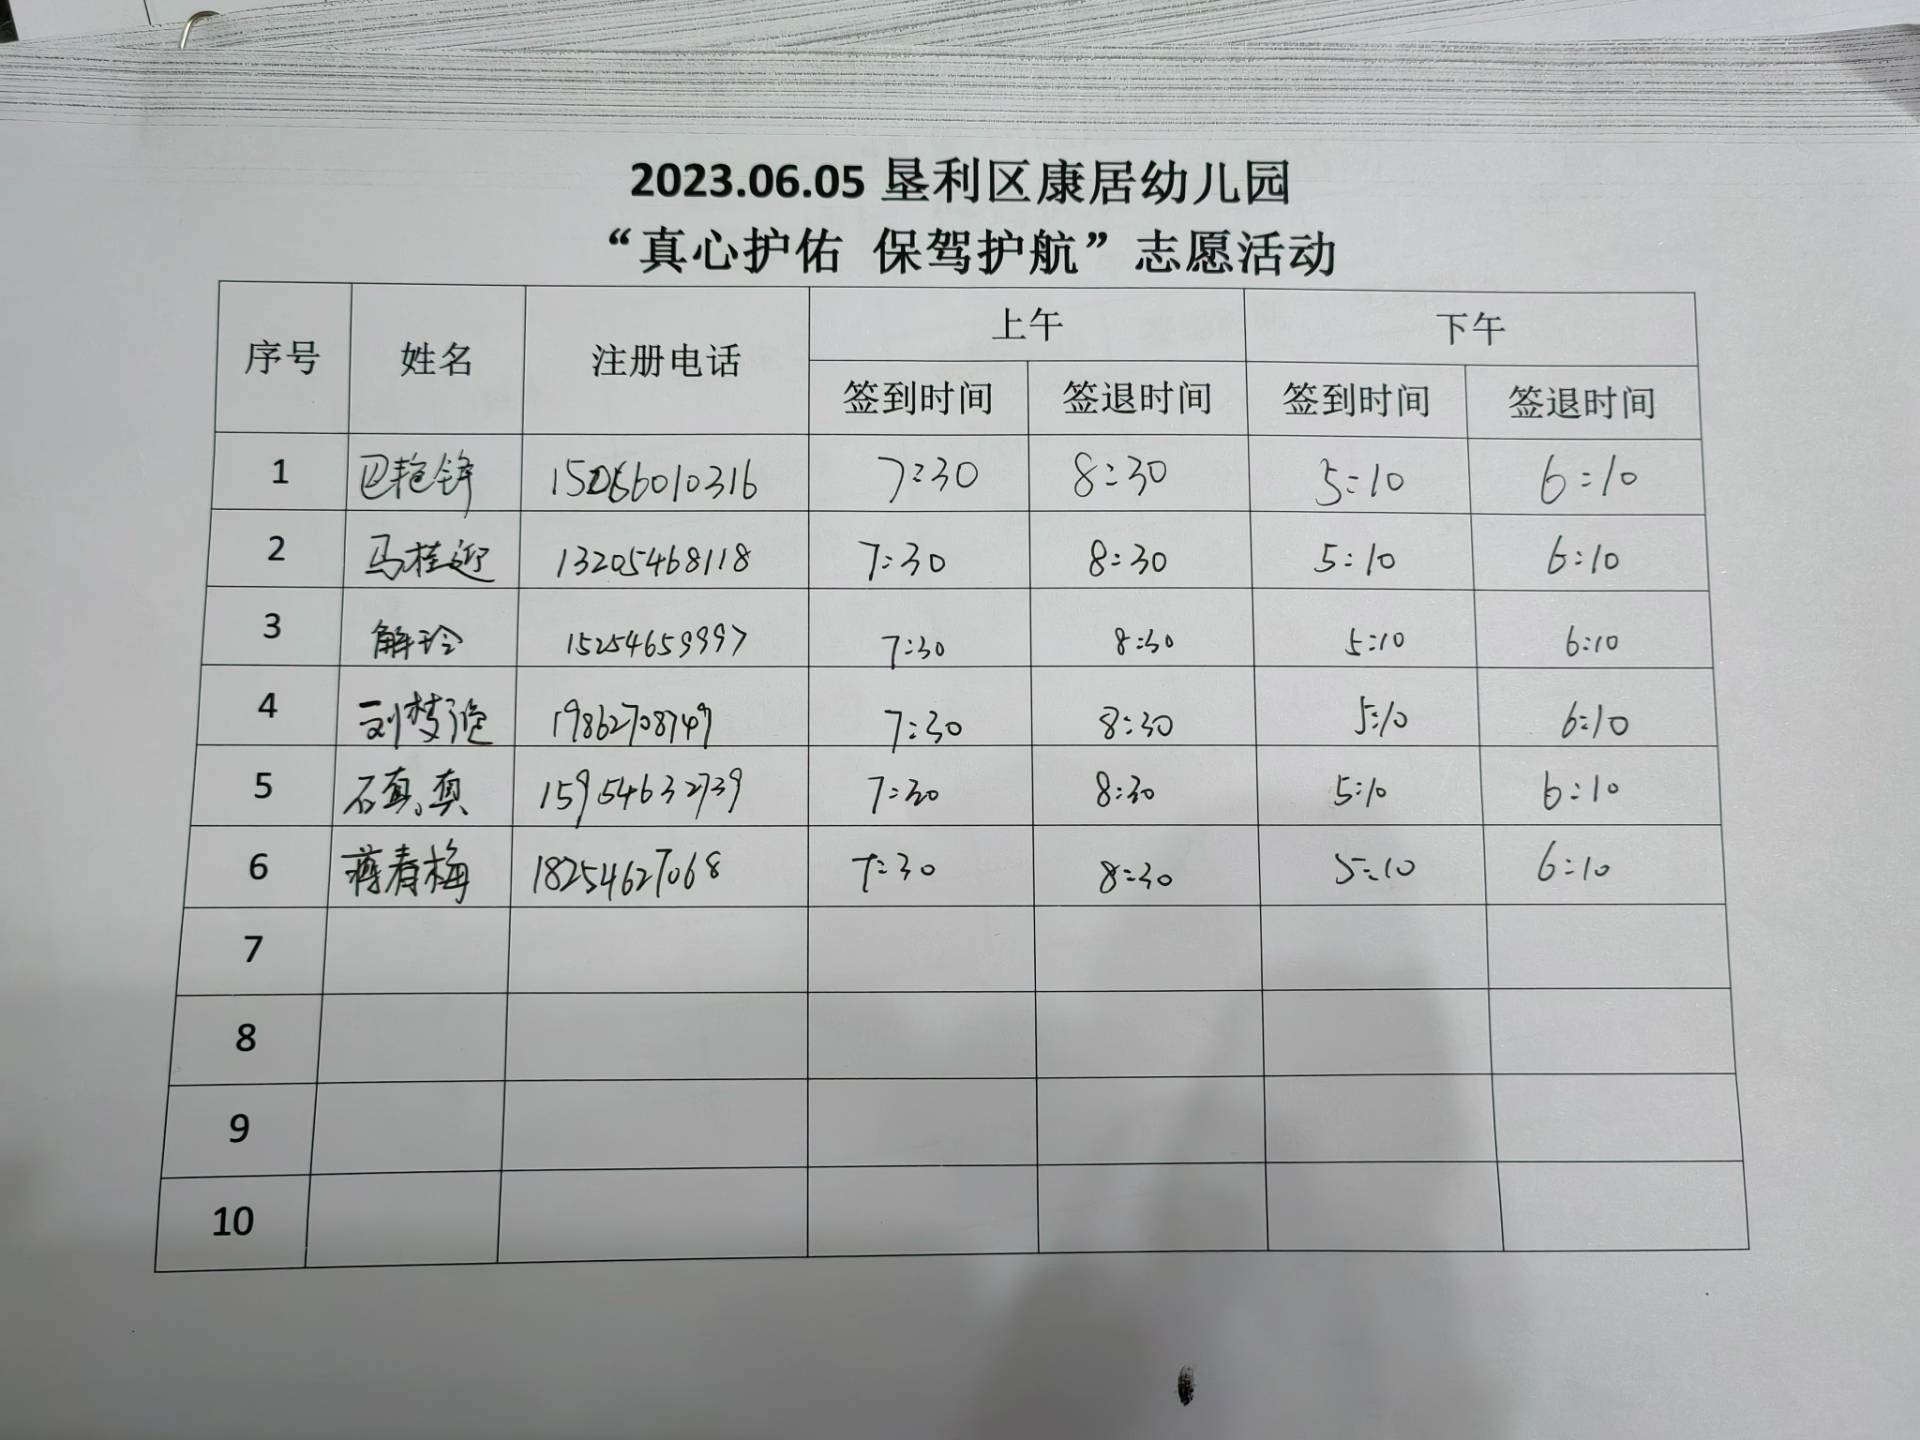 2023.06.05 垦利区康居幼儿园
“真心护佑 保驾护航”志愿活动
序号 姓名 注册电话 上午 下午
签到时间 签退时间 签到时间 签退时间
1 15066010316 7:30 8:30 5:10 6:10
2 马桂迎 13205468118 7:30 8:30 5:10 6:10
3 解玲 15254659997 7:30 8:30 5:10 6:10
4 19862708749 7:30 8:30 5:10 6:10
5 石真真 15954632739 7:30 8:30 5:10 6:10
6 蒋春梅 18254627068 7:30 8:30 5:10 6:10
7
8
9
10